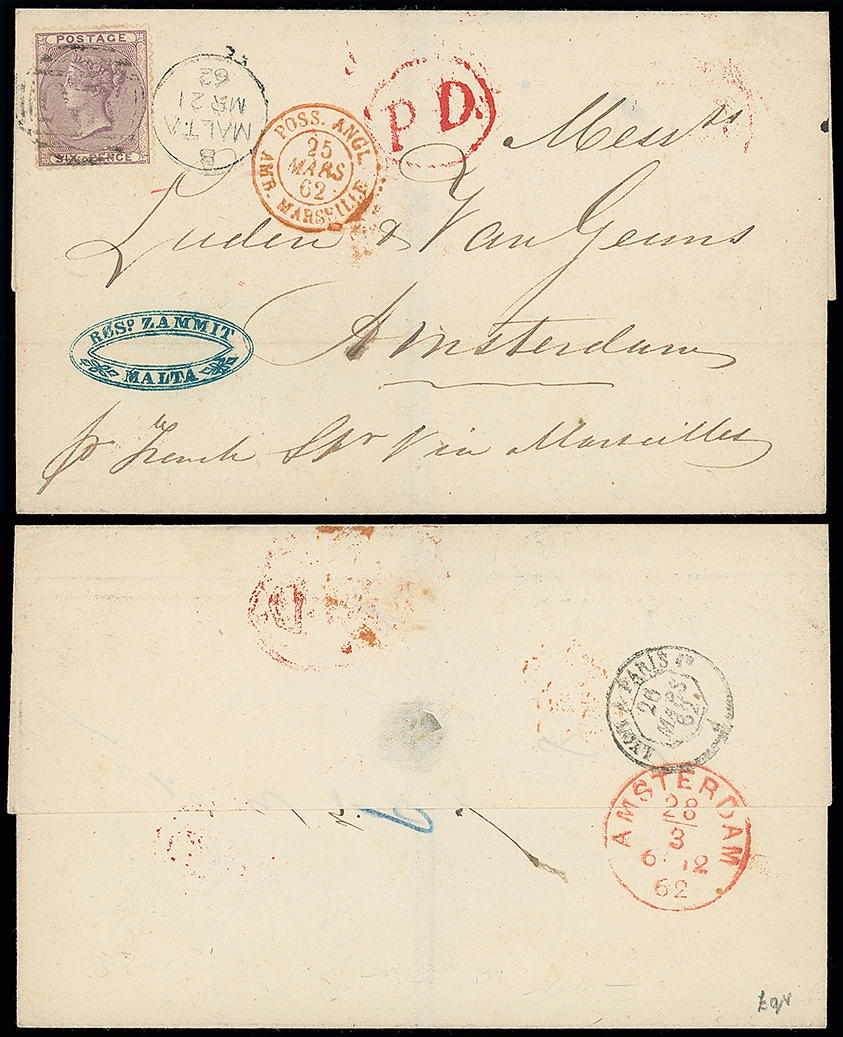 POSTAGE
SIX PENCE
B
MALTA
MR 21
62
POSS. ANGL.
AMB. MARSEILLE
25
MARS
62
P.D.
Mess.rs
Luden & Van Geuns
Amsterdam
pr French Str Via Marseilles
ROSO. ZAMMIT
MALTA
LYON A PARIS
26
MARS
62
AMSTERDAM
28
3
6-12
62